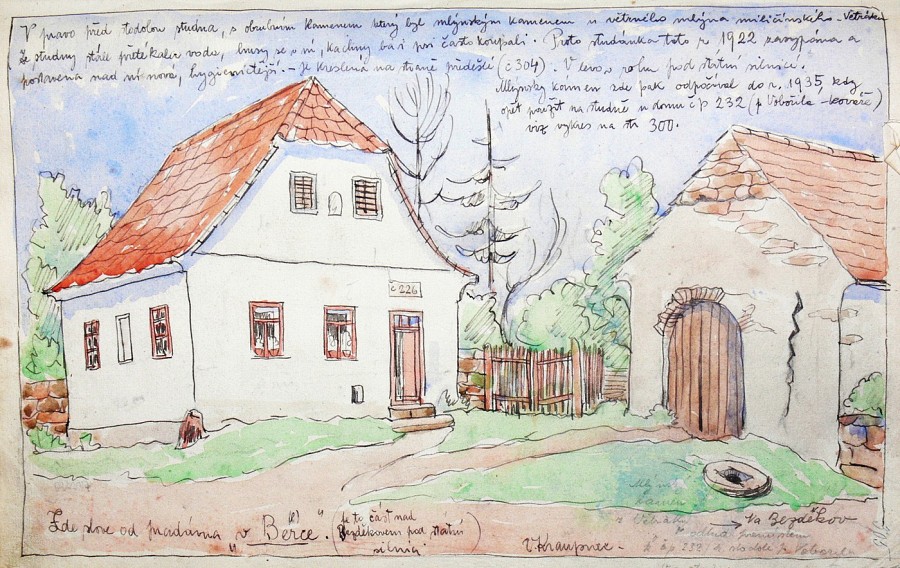 V pravo před stodolou studna, s obrubním kamenem který byl mlýnským kamenem u větrného mlýna miličínského - Větrák
Ze studny stále přetékala voda, husy se v ní, kachny báj při často koupali. Proto studánka tato r. 1922 zasypána a
postavena nad ní nová, hygieničtější. - Je kreslená na straně předešlé (č 304). V levo, v rohu pod státní silnicí.
Mlýnský kámen zde pak odpočíval do r. 1935, kdy
opět použit na studně u domu čp 232 (p Vobořila - kováře)
viz výkres na str 300.
č 226
Zde slove od pradávna "v Berce".
(Je to část nad
Bezděkovem pod státní
silnicí)
V. Kraupner -
kámen
z Větráku
→ Na Bezděkov
k čp 232